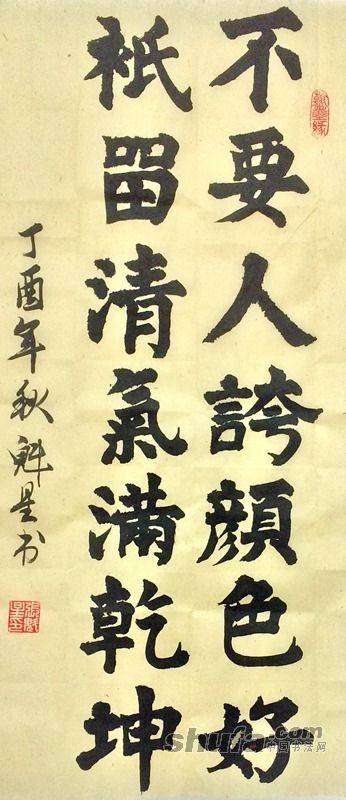 不要人誇顔色好
祇留清氣滿乾坤
丁酉年秋魁星书
張魁星印
shufa.com
中国书法网